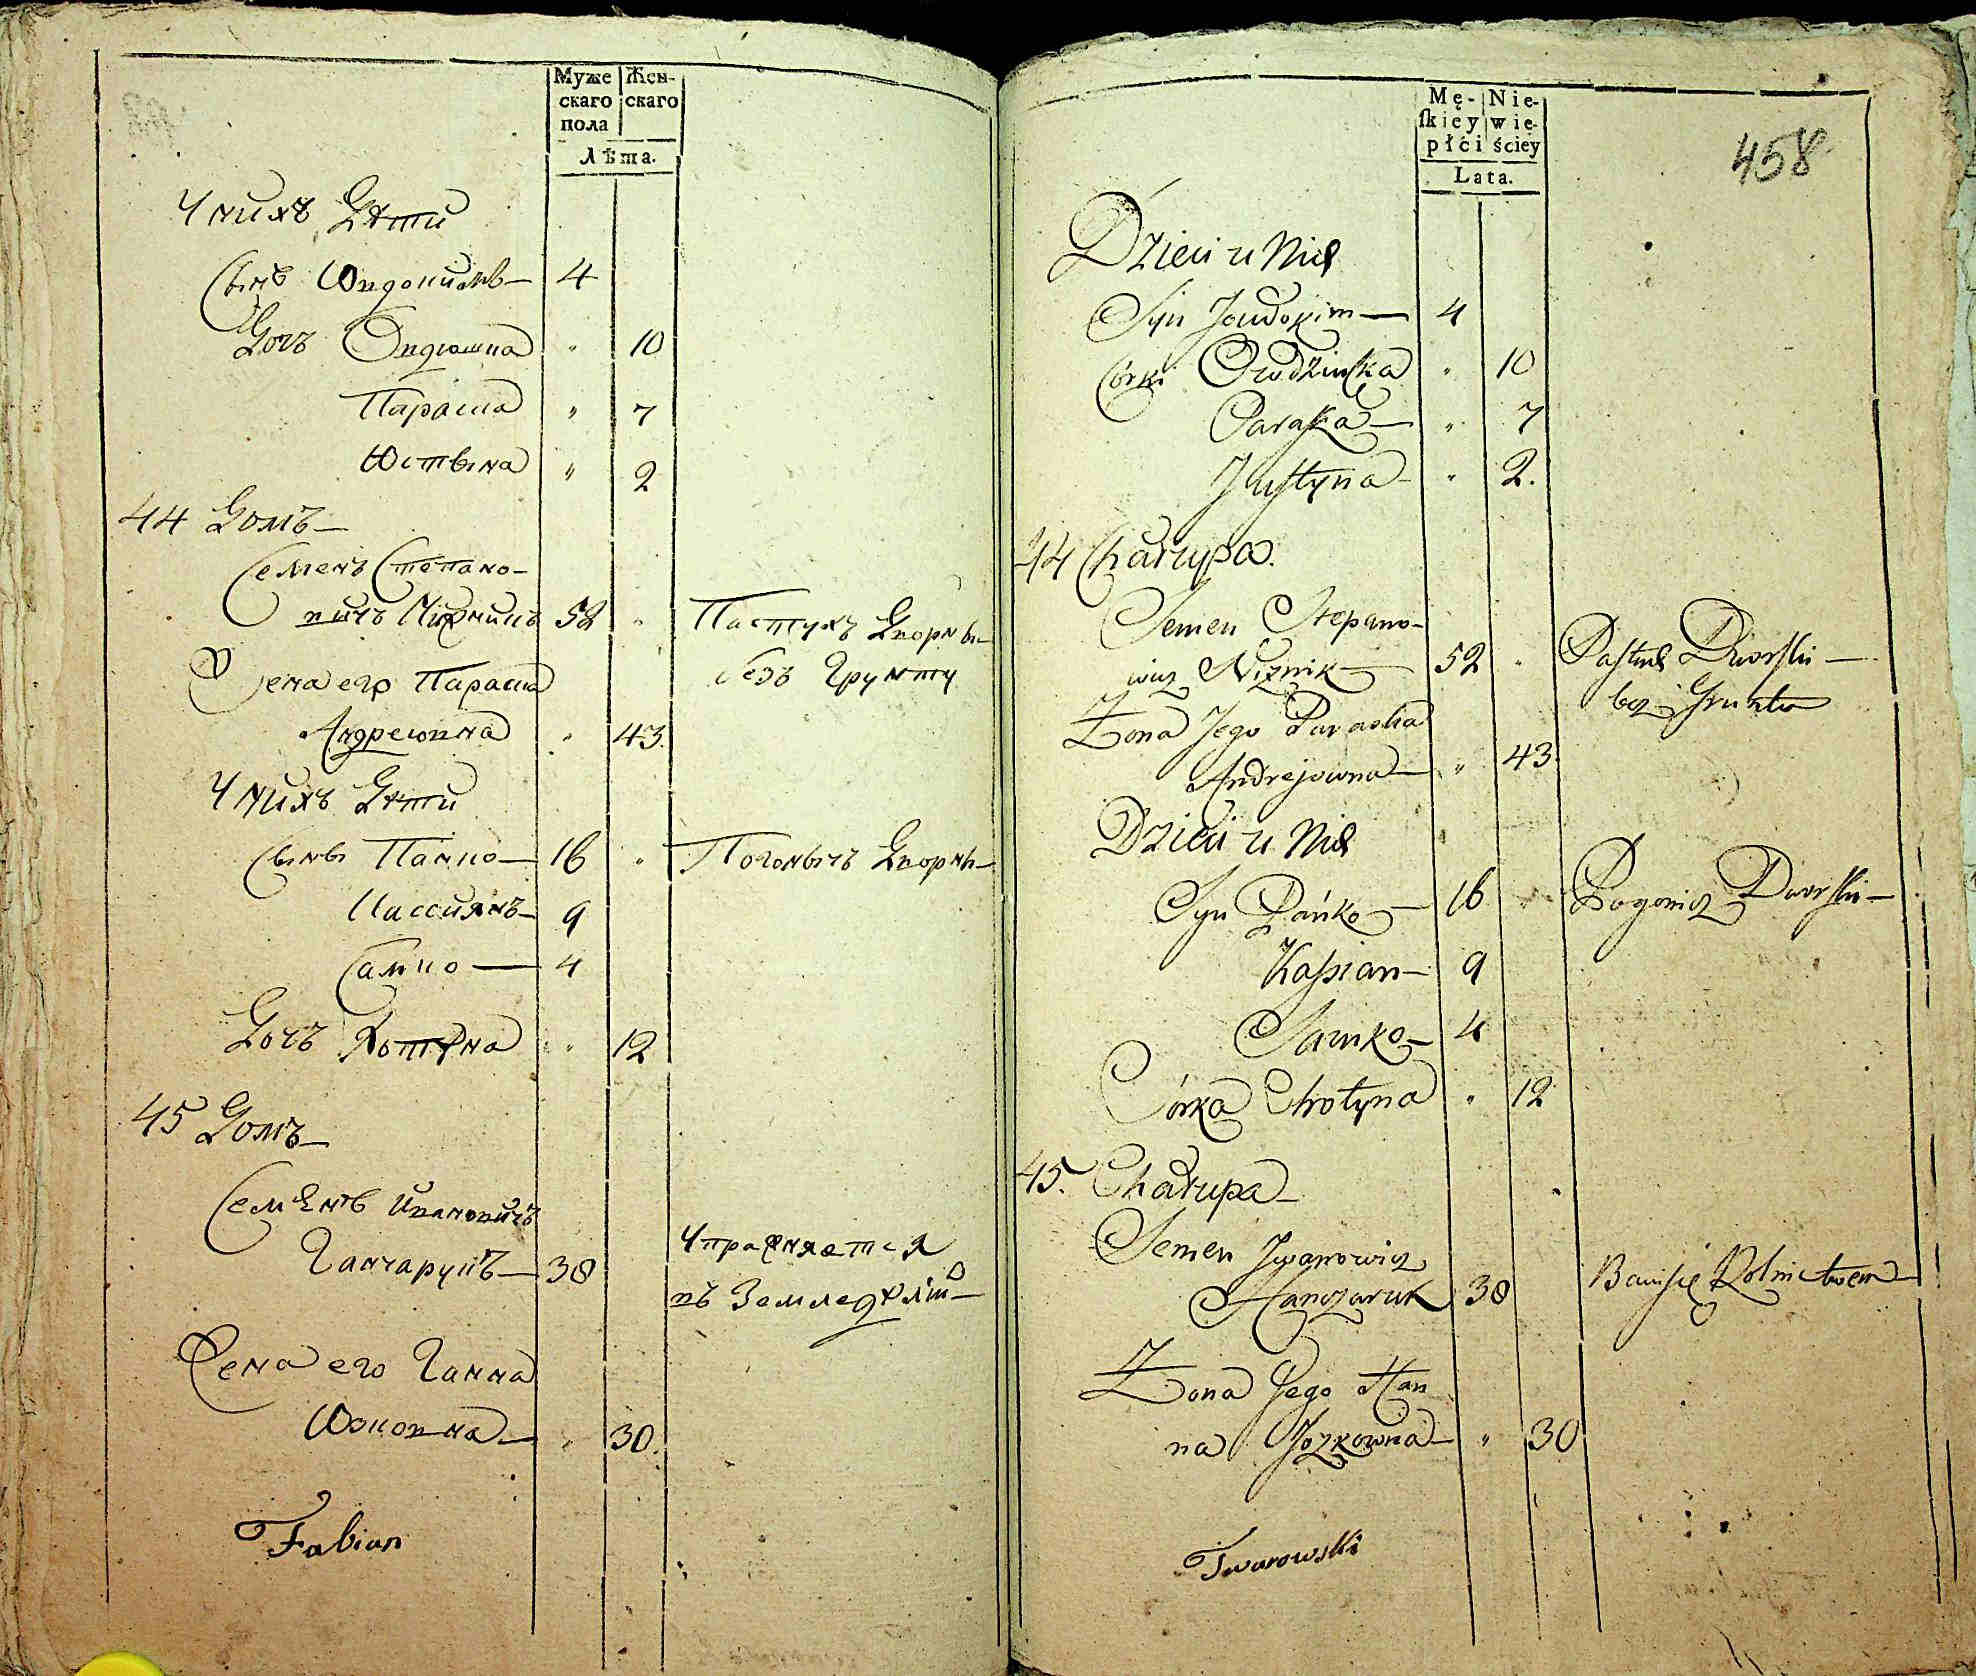 Муже Жен-
скаго скаго
пола
Лѣта.
У нихъ Дѣти
Сынъ Овдокимъ — 4
Дочь Овдюшка " 10
Параска " 7
Юстына " 2
44 Домъ —
Семенъ Степано-
вичъ Нижникъ 52 " Пастухъ Дворны-
Жена его Параска безъ Грунту
Андреювна " 43.
У нихъ Дѣти
Сынъ Панко — 16 " Погонычъ Дворны-
Кассиянъ — 9
Самко — 4
Дочь Хотына " 12
45 Домъ —
Семѣнъ Ивановичъ
Ганчарукъ — 38 Упражняется
въ Земледѣлiи —
Жена его Ганна
Юзковна — " 30.
Fabian
458
Mę- Nie-
ſkiey wie-
płći ściey
Lata.
Dzieci u Nich
Syn Jowdokim — 4
Córki Owdziuszka " 10
Paraska — " 7
Justyna — " 2.
44 Chałupa.
Semen Stepano-
wicz Niznik — 52 " Pastuch Dworski —
Zona Jego Paraska bez Gruntu
Andrejowna — " 43
Dzieci u Nich
Syn Pańko — 16 " Pogonicz Dworski —
Kassian — 9
Samko — 4
Córka Chotyna " 12
45. Chałupa —
Semen Jwanowicz
Hanczaruk 38 Bawi się Rolnictwem
Zona Jego Han
na Jozkowna — " 30
Twarowski